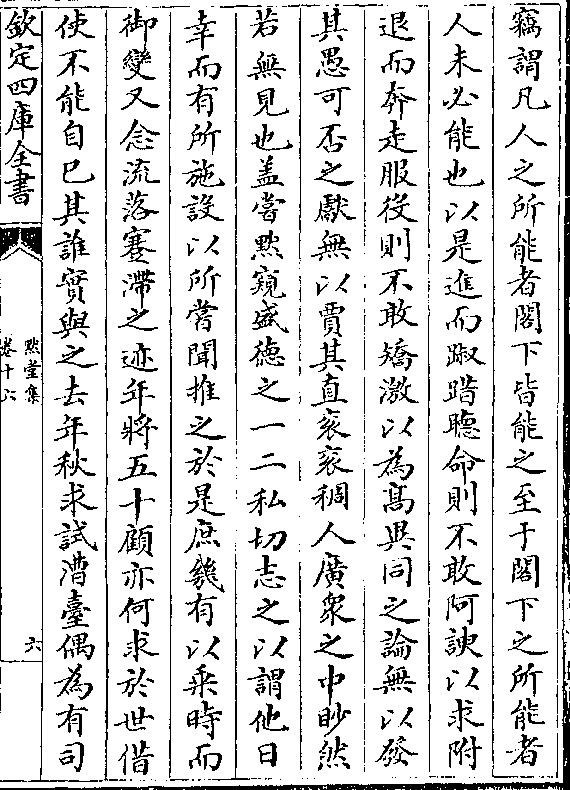 竊謂凡人之所能者閣下皆能之至于閣下之所能者
人未必能也以是進而踧踖聽命則不敢阿諛以求附
退而奔走服役則不敢矯激以為髙異同之論無以發
其愚可否之獻無以賈其直衮衮稠人廣衆之中眇然
若無見也盖嘗黙窺盛德之一二私切志之以謂他日
幸而有所施設以所嘗聞推之於是庶幾有以乗時而
御變又念流落蹇滯之迹年將五十顧亦何求於世偕
使不能自已其誰實與之去年秋求試漕臺偶為有司
欽定四庫全書
黙堂集
卷十六
六